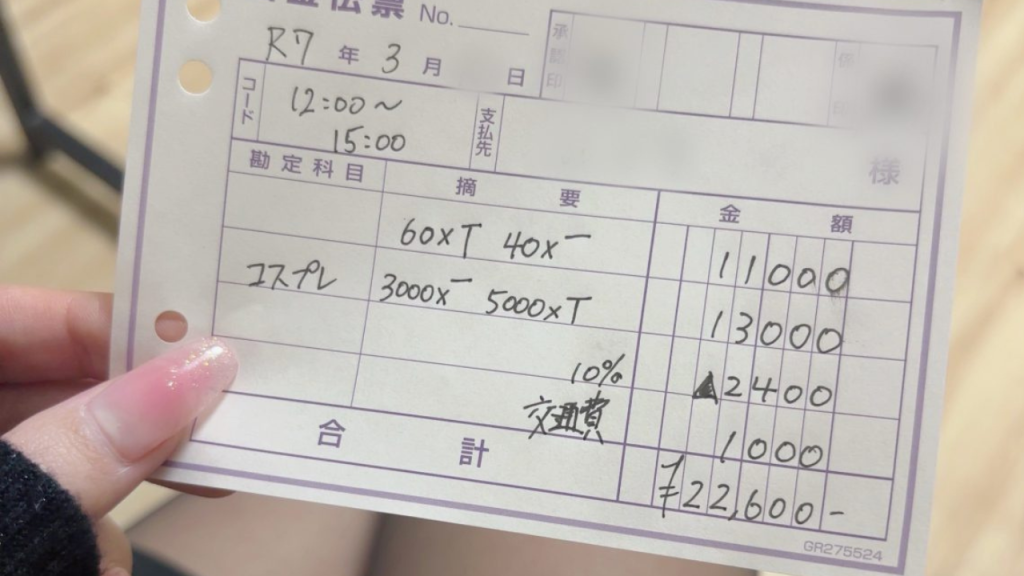 金伝票 No.
承認印
係印
R7 年 3 月 日
コード 12:00〜 15:00
支払先 様
勘定科目 摘要 金額
60×T 40×一 11000
コスプレ 3000×一 5000×T 13000
10% ▲2400
交通費 1000
合計 ¥22,600-
GR275524